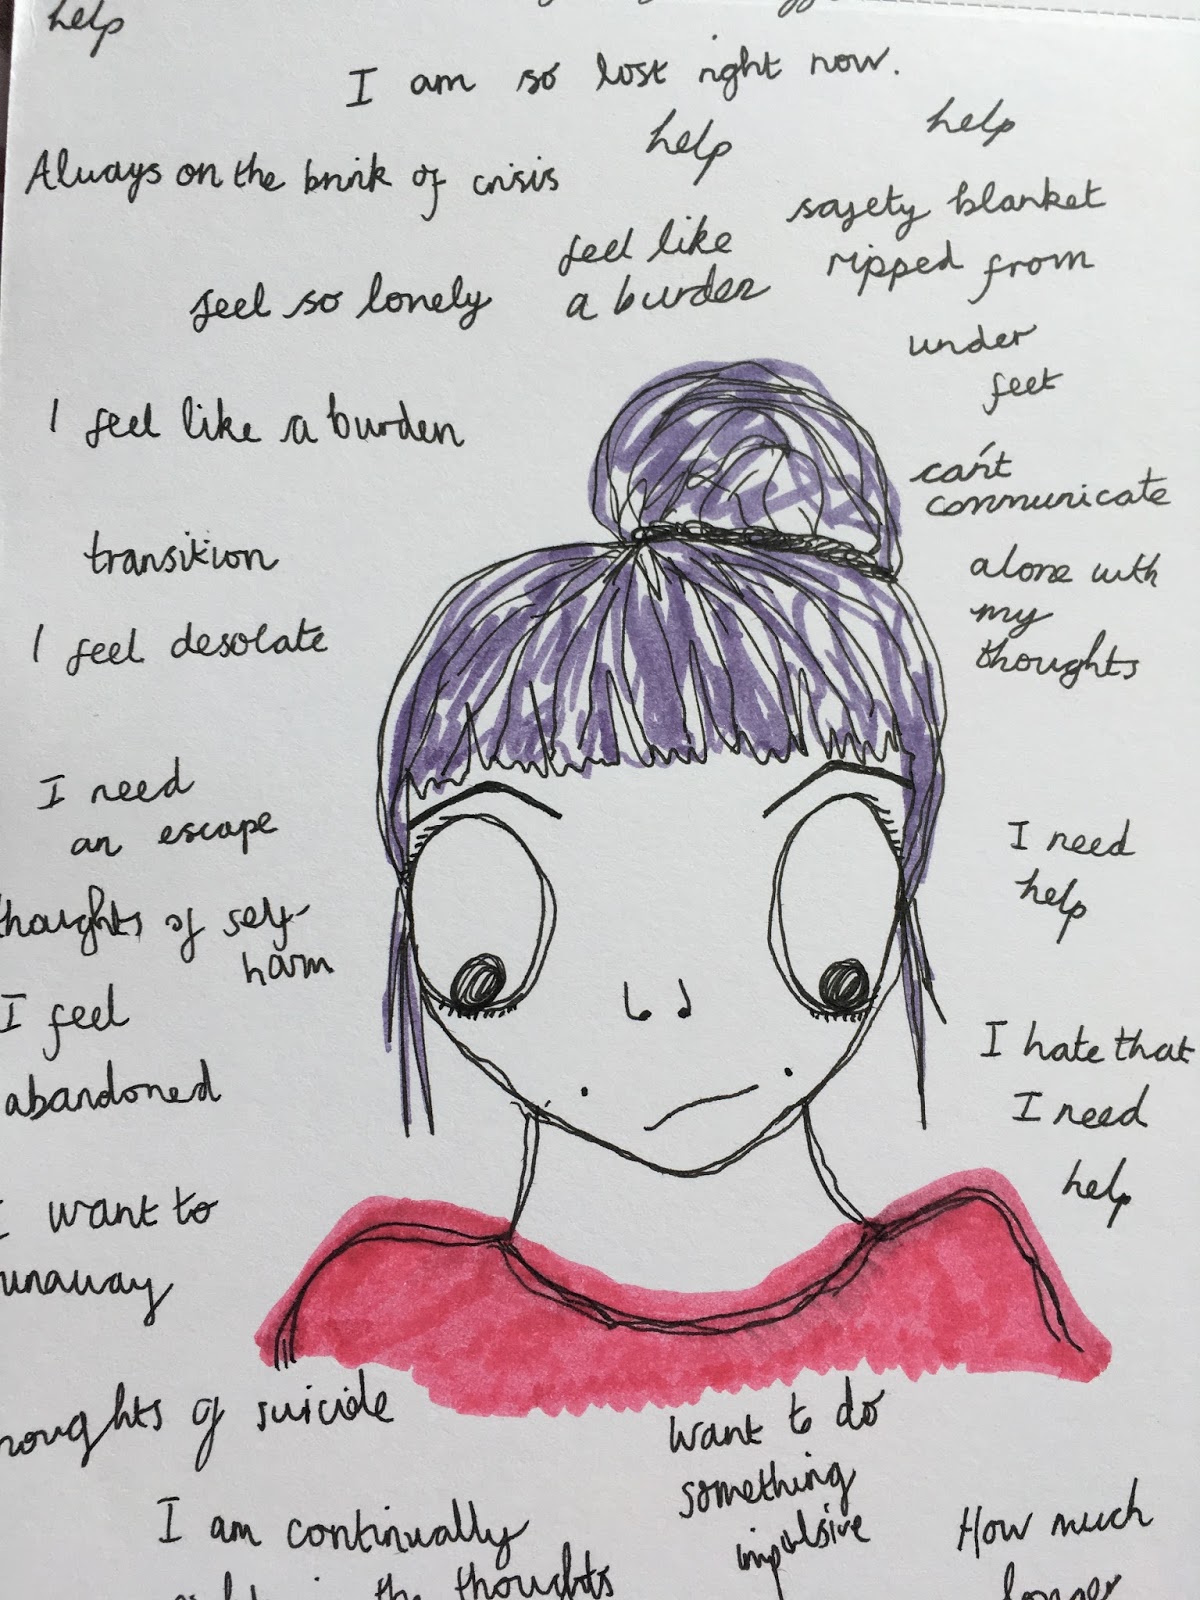 help
I am so lost right now.
help
help
Always on the brink of crisis
safety blanket
ripped from
under
feet
feel like
a burden
feel so lonely
I feel like a burden
can't
communicate
transition
alone with
my
thoughts
I feel desolate
I need
an escape
I need
help
thoughts of self-
harm
I feel
abandoned
I hate that
I need
help
I want to
runaway
thoughts of suicide
want to do
something
impulsive
I am continually
the thoughts
How much
longer